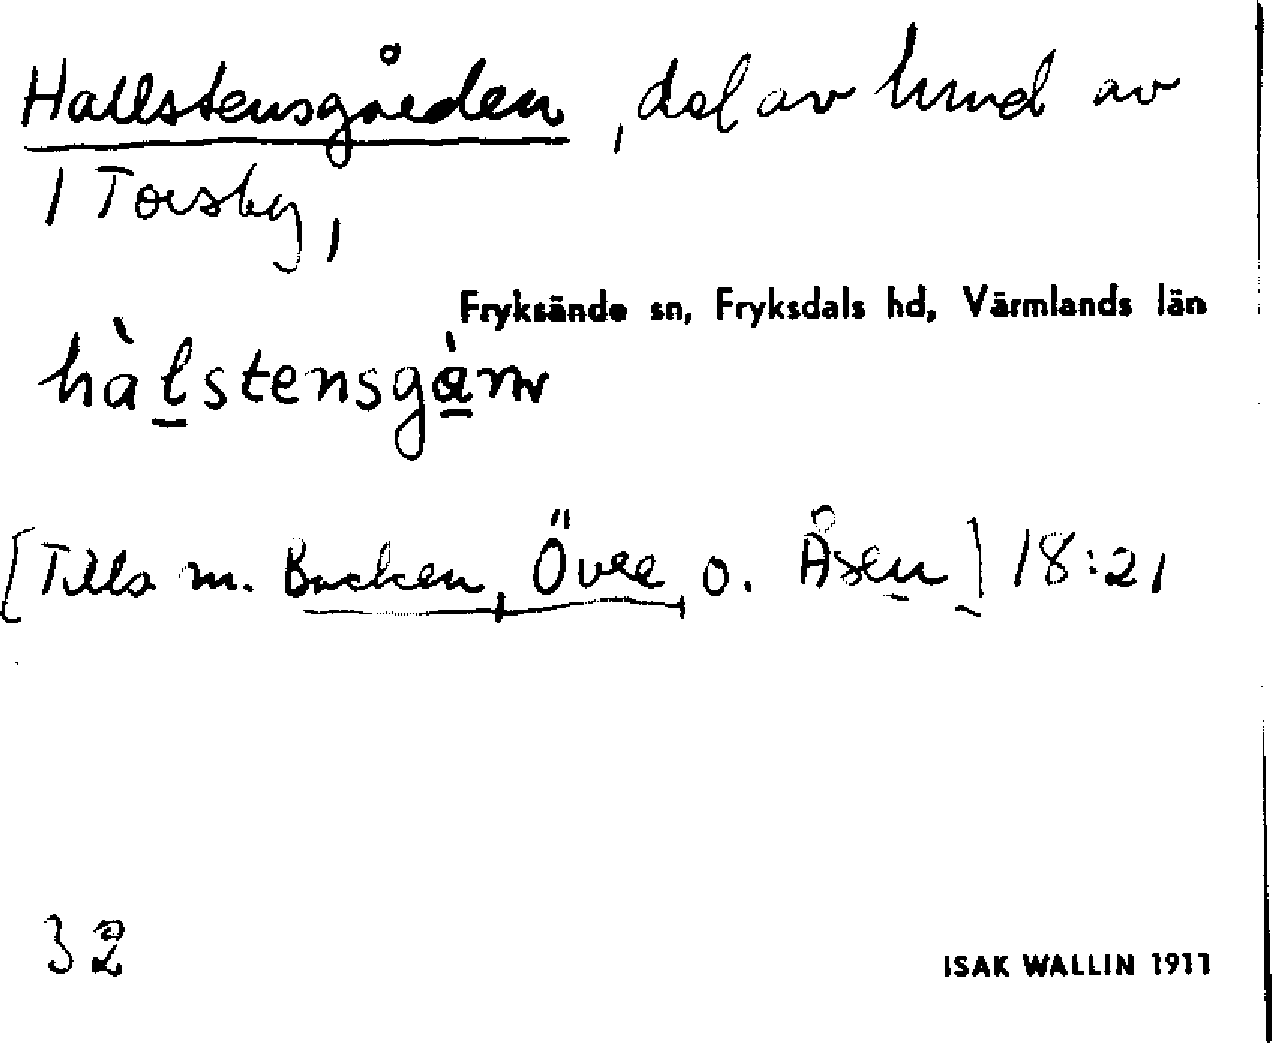 Hallstensgården, del av hmd av
1 Torsby,
Fryksände sn, Fryksdals hd, Värmlands län
hàlstensgàrn
[Tills m. Backen, Övre o. Åsen] 18:21
32
ISAK WALLIN 1911